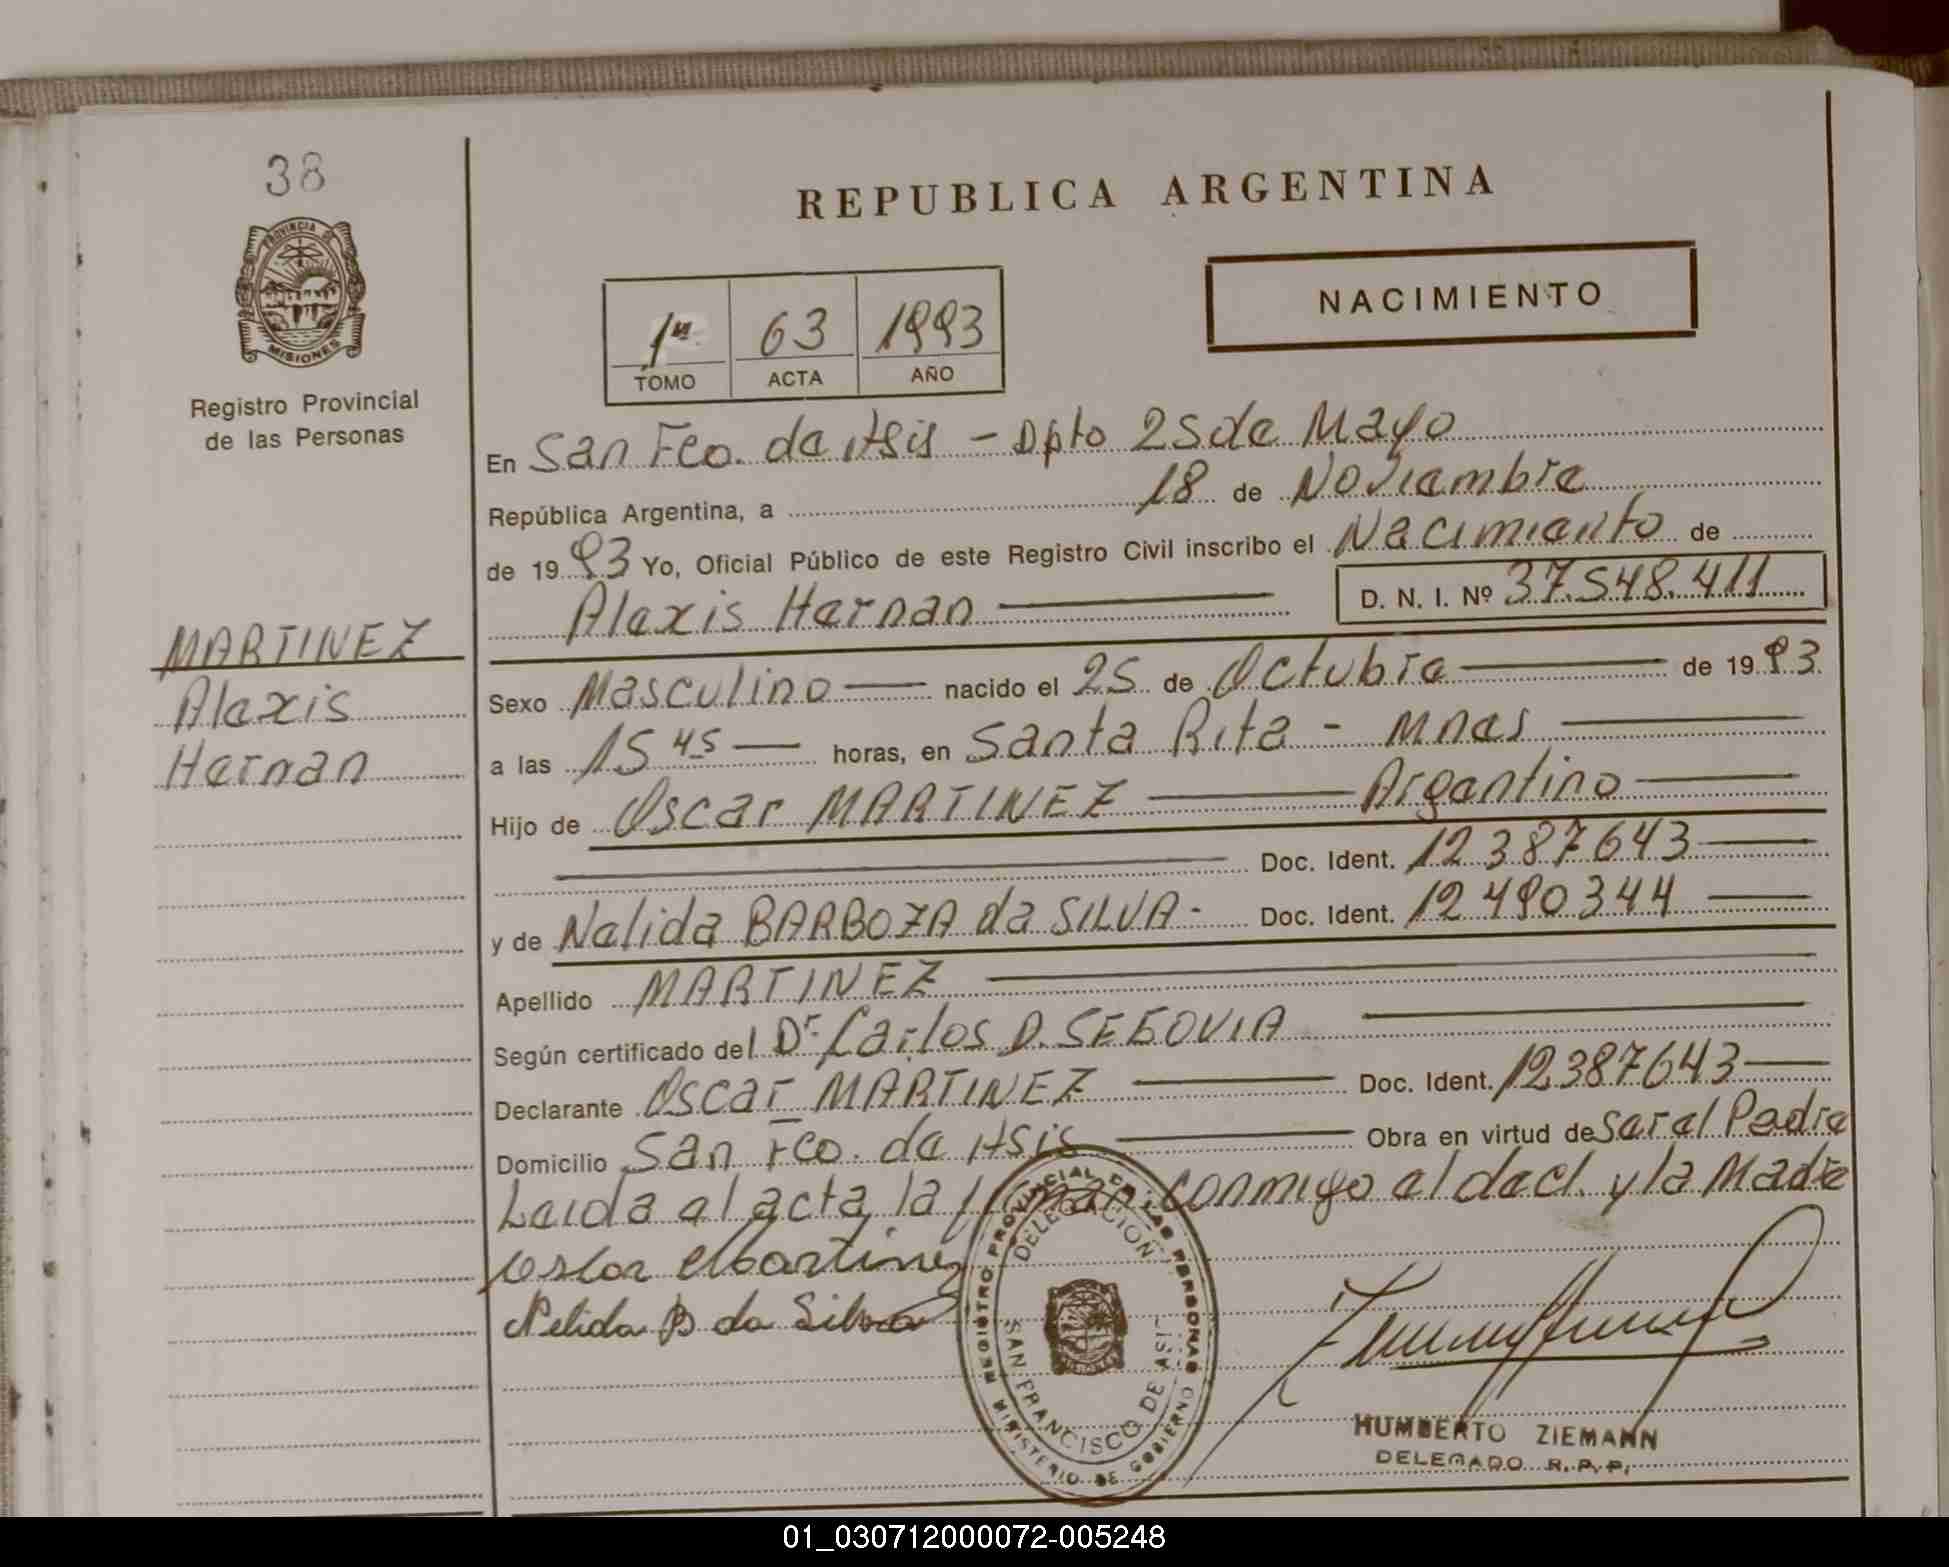 38
PROVINCIA DE
MISIONES
Registro Provincial
de las Personas
MARTINEZ
Alexis
Hernan
REPUBLICA ARGENTINA
NACIMIENTO
1º 63 1993
TOMO ACTA AÑO
En San Fco. de Asis - Dpto 25 de Mayo
República Argentina, a 18 de Noviembre
de 1993 Yo, Oficial Público de este Registro Civil inscribo el Nacimiento de
Alexis Hernan D. N. I. Nº 37.548.411
Sexo Masculino nacido el 25 de Octubre de 1993
a las 15 45 horas, en Santa Rita - Mnes
Hijo de Oscar MARTINEZ Argentino
Doc. Ident. 12387643
y de Nelida BARBOZA da SILVA - Doc. Ident. 12490344
Apellido MARTINEZ
Según certificado del Dr. Carlos D. SEGOVIA
Declarante Oscar MARTINEZ Doc. Ident. 12387643
Domicilio San Fco. de Asis Obra en virtud de ser el Padre
Leida el acta, la firman conmigo el decl. y la Madre
Oscar Martinez
Nelida B da Silva
REGISTRO PROVINCIAL DE LAS PERSONAS
DELEGACION
SAN FRANCISCO DE ASIS
MINISTERIO DE GOBIERNO
HUMBERTO ZIEMANN
DELEGADO R.P.P.
01_030712000072-005248